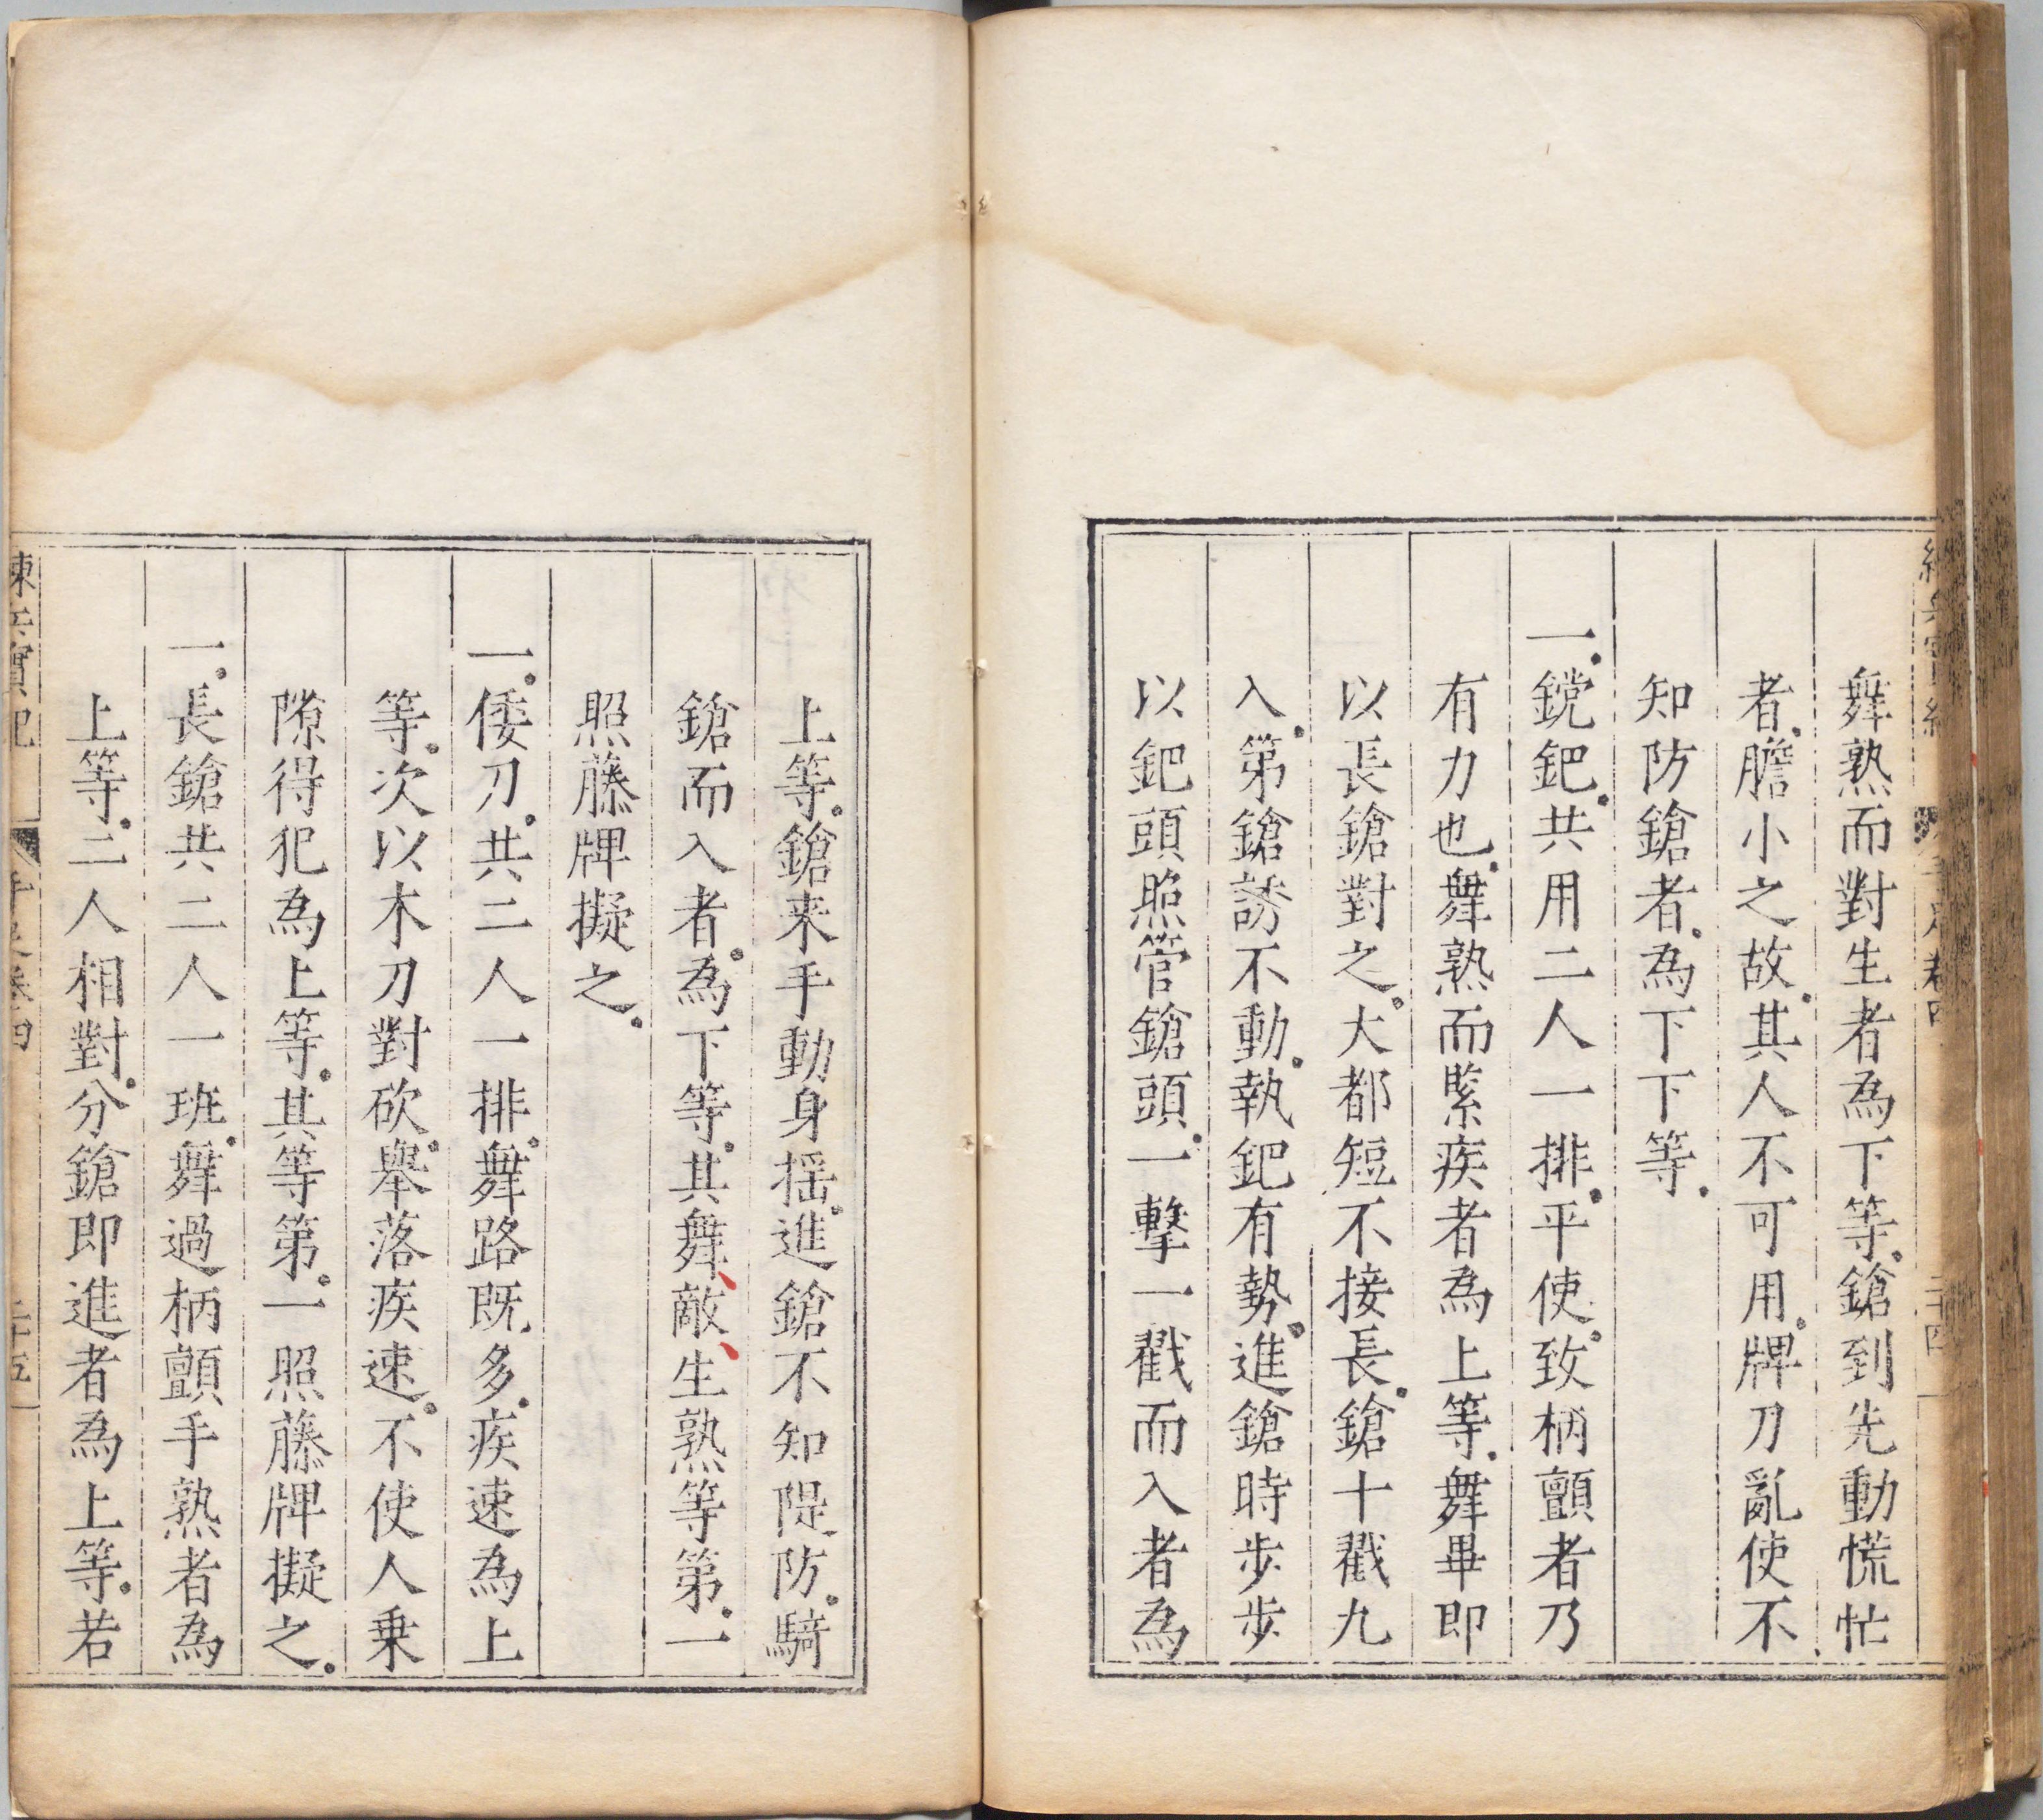 舞熟而對生者為下等鎗到先動慌忙
者膽小之故其人不可用牌刀亂使不
知防鎗者為下下等
一鎲鈀共用二人一排平使致柄顫者乃
有力也舞熟而緊疾者為上等舞畢即
以長鎗對之大都短不接長鎗十戳九
入第鎗誘不動執鈀有勢進鎗時步步
以鈀頭照管鎗頭一擊一戳而入者為
上等鎗来手動身揺進鎗不知隄防騎
鎗而入者為下等其舞敵生熟等第一
照藤牌擬之
一倭刀共二人一排舞路既多疾速為上
等次以木刀對砍舉落疾速不使人乗
隙得犯為上等其等第一照藤牌擬之
一長鎗共二人一班舞過柄顫手熟者為
上等二人相對分鎗即進者為上等若
練兵實紀 卷四 二十五